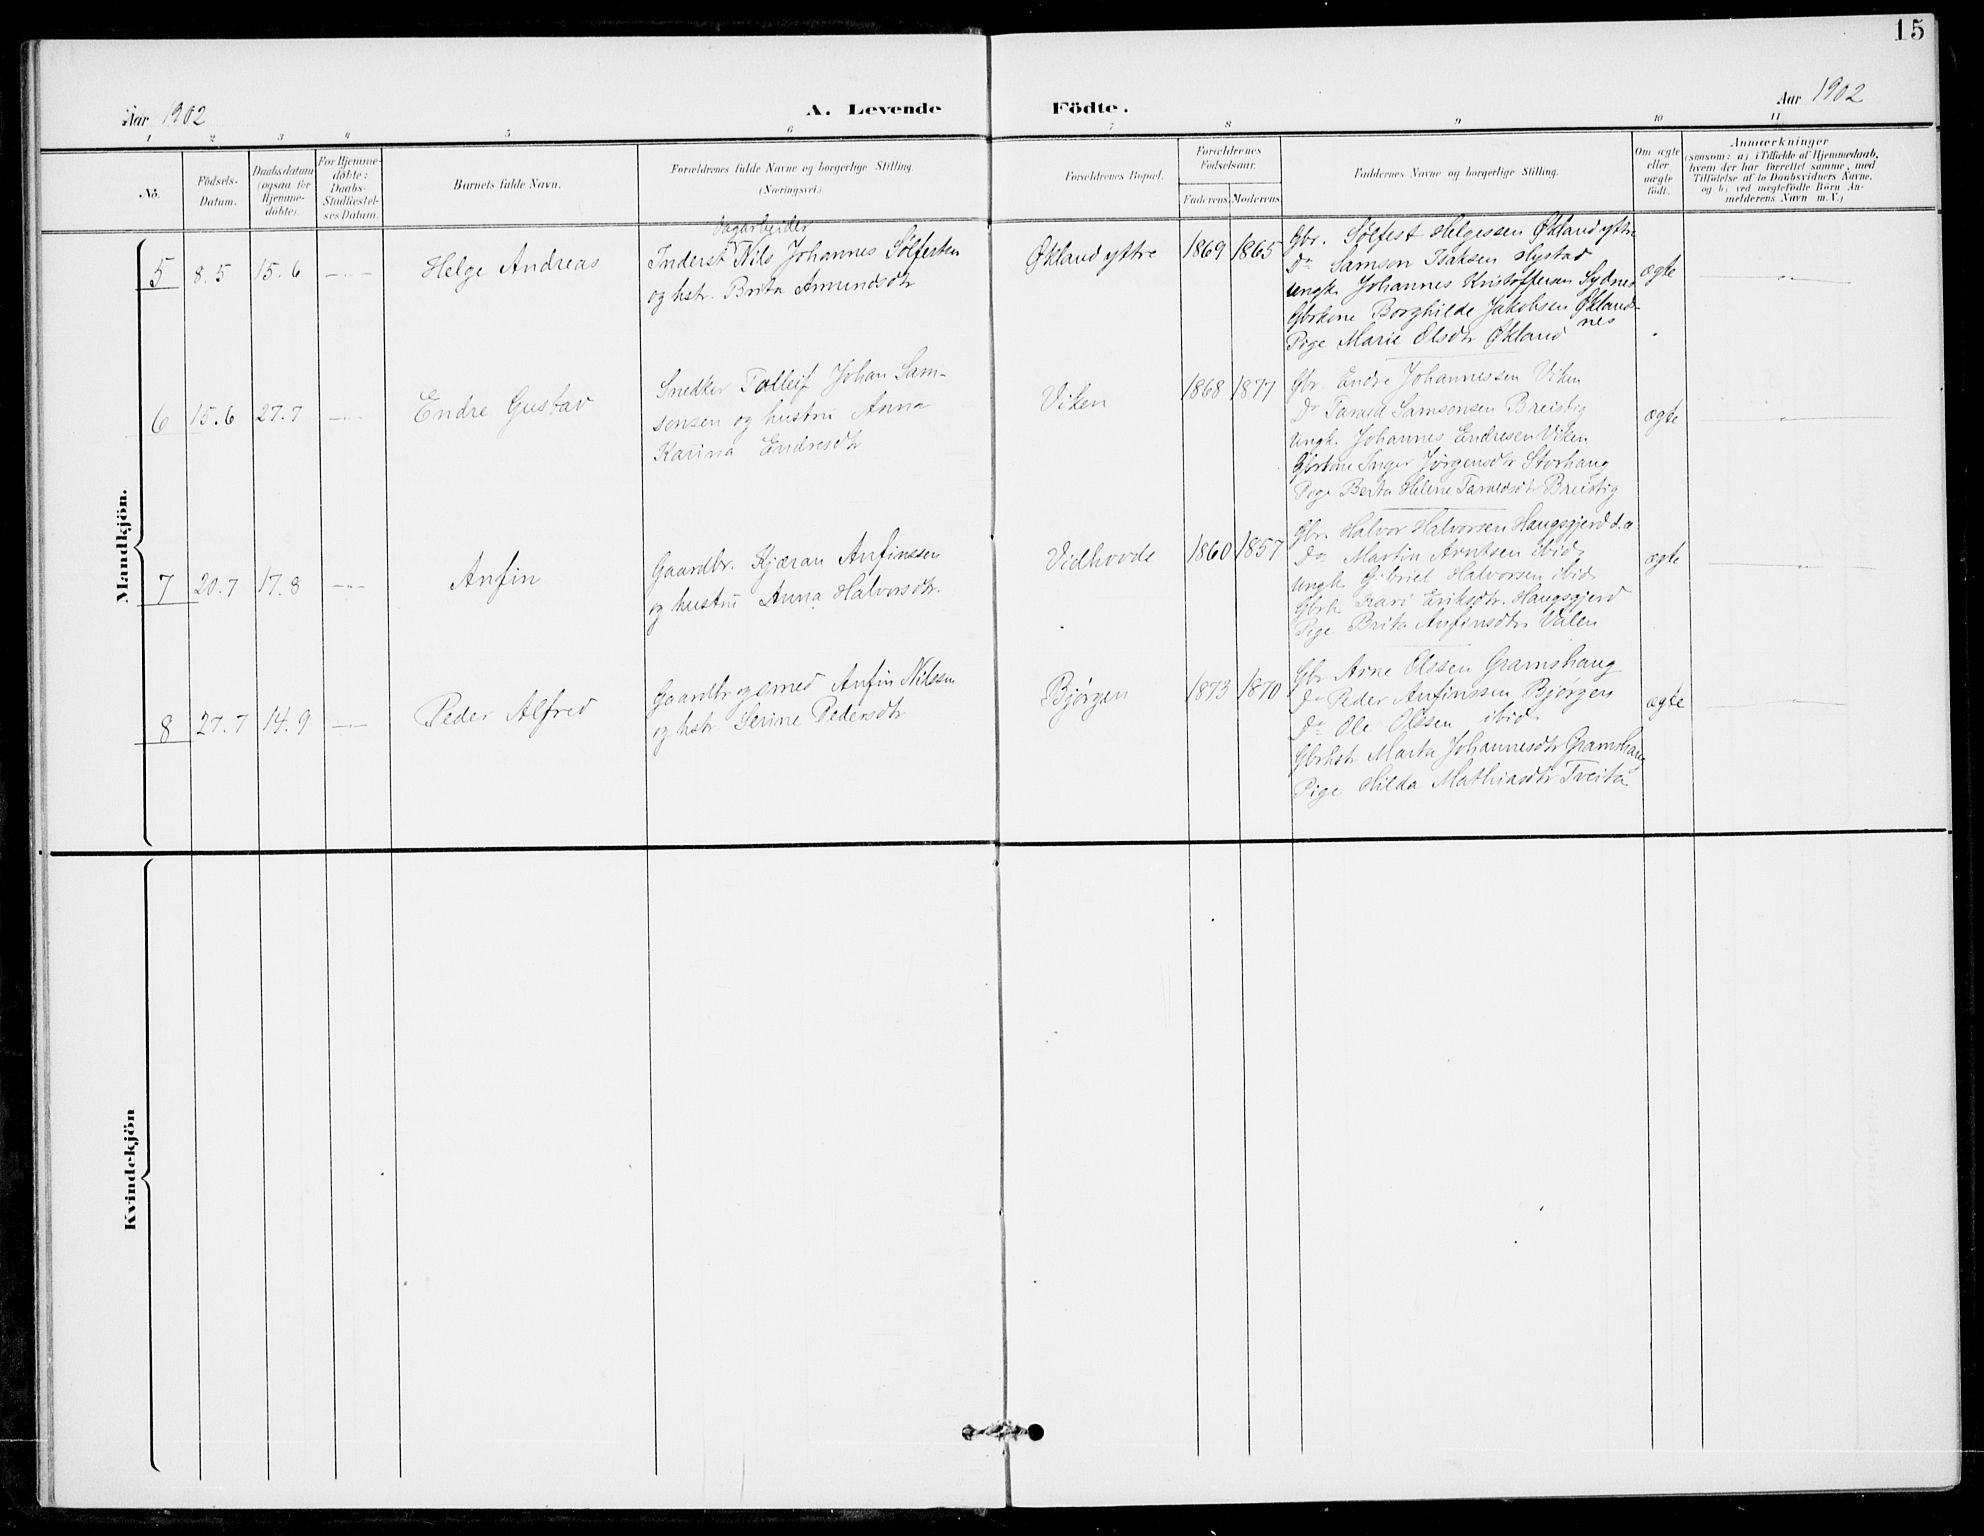 15
Aar 1902
A. Levende
Födte.
Aar 1902
1 2 3 4 5 6 7 8 9 10 11
No.
Födsels-
Datum.
Daabsdatum
(ogsaa for
Hjemme-
döbte).
For Hjemme-
döbte:
Daabs-
Stadfæstel-
ses Datum.
Barnets fulde Navn.
Forældrenes fulde Navne og borgerlige Stilling.
(Næringsvei.)
Forældrenes Bopæl.
Forældrenes
Födselsaar.
Faderens. Moderens.
Faddernes Navne og borgerlige Stilling.
Om ægte
eller
uægte
födt.
Anmærkninger
(saasom: a) i Tilfælde af Hjemmedaab,
hvem der har forrettet samme, med
Tilföielse af to Daabsvidners Navne,
og b) ved uægtefödte Börn An-
melderens Navn m. V.)
Mandkjön.
5 8.5 15.6 — " — Helge Andreas
Dagarbeider
Inderst Nils Johannes Sølfesten
og hstr. Brita Amundsdtr
Økland ytre 1869 1865
Gbr. Sølfest Helgessen Økland ytre
Do Samson Isaksen Hystad
Ungk. Johannes Kristoffersen Sydnes
Gbrkone Borghilde Jakobsen Øklands-
nes
Pige Marie Olsdtr Økland
ægte — " —
6 15.6 27.7 — " — Endre Gustav
Snedker Tolleif Johan Sam-
sonsen og hustru Anna
Karina Endresdtr
Viken 1868 1877
Gbr. Endre Johannessen Viken
Do Tarald Samsonsen Breistig
Ungk. Johannes Endresen Viken
Gbrkone Inger Jørgensdtr Storhaug
Pige Berta Helene Taraldsdtr Breistig
ægte — " —
7 20.7 17.8 — " — Anfin
Gaardbr. Kjæran Anfinssen
og hustru Anna Halvorsdtr.
Vidhovde 1860 1857
Gbr. Halvor Halvorsen Haugsgjerd d.æ.
Do Martin Arntsen ibid.
Ungk. Gabriel Halvorsen ibid.
Gbrk. Kari Eriksdtr. Haugsgjerd
Pige Brita Anfinsdtr. Valen
ægte — " —
8 27.7 14.9 — " — Peder Alfred
Gaardbr og smed Anfin Nilssen
og hstr. Serine Pedersdtr
Bjørgen 1873 1870
Gbr Arne Olssen Gramshaug
Do Peder Anfinssen Bjørgen
Do Ole Olssen ibid.
Gbrhstr Marta Johannesdtr Gramshaug
Pige Hilda Mathiasdtr Tveita
ægte — " —
Kvindekjön